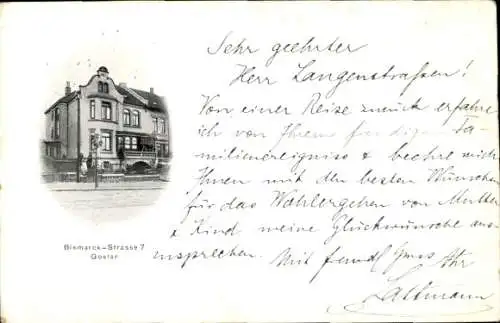 Sehr geehrter
Herr Langenstraßen!
Von einer Reise zurück erfahre
ich von Ihrem freudigen Fa-
milienereigniss & beehre mich
Ihnen mit den besten Wünschen
für das Wohlergehen von Mutter
& Kind meine Glückwünsche aus-
zusprechen.
Mit freundl Gruss Ihr
Lattmann
Bismarck-Strasse 7
Goslar